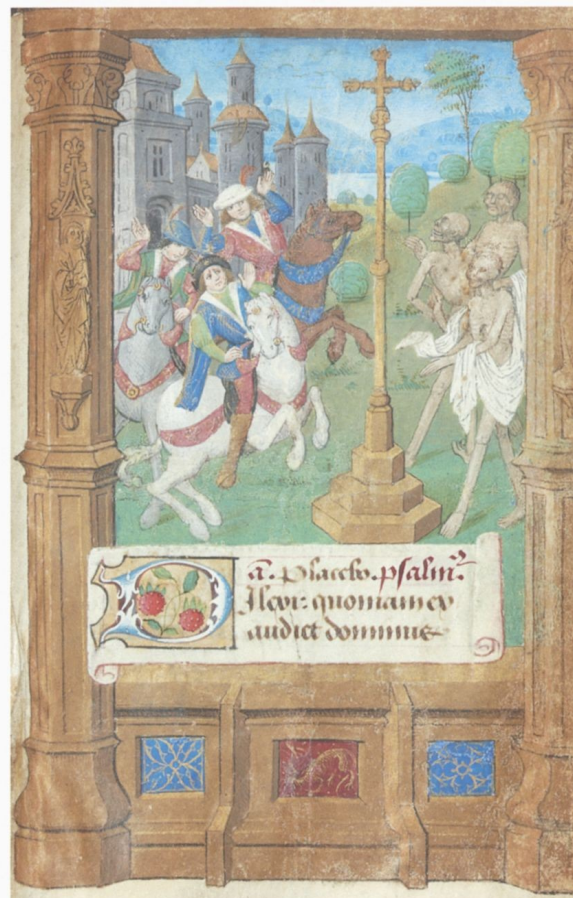 a. Placebo. psalmus.
Dilexi: quoniam ex
audiet dominus